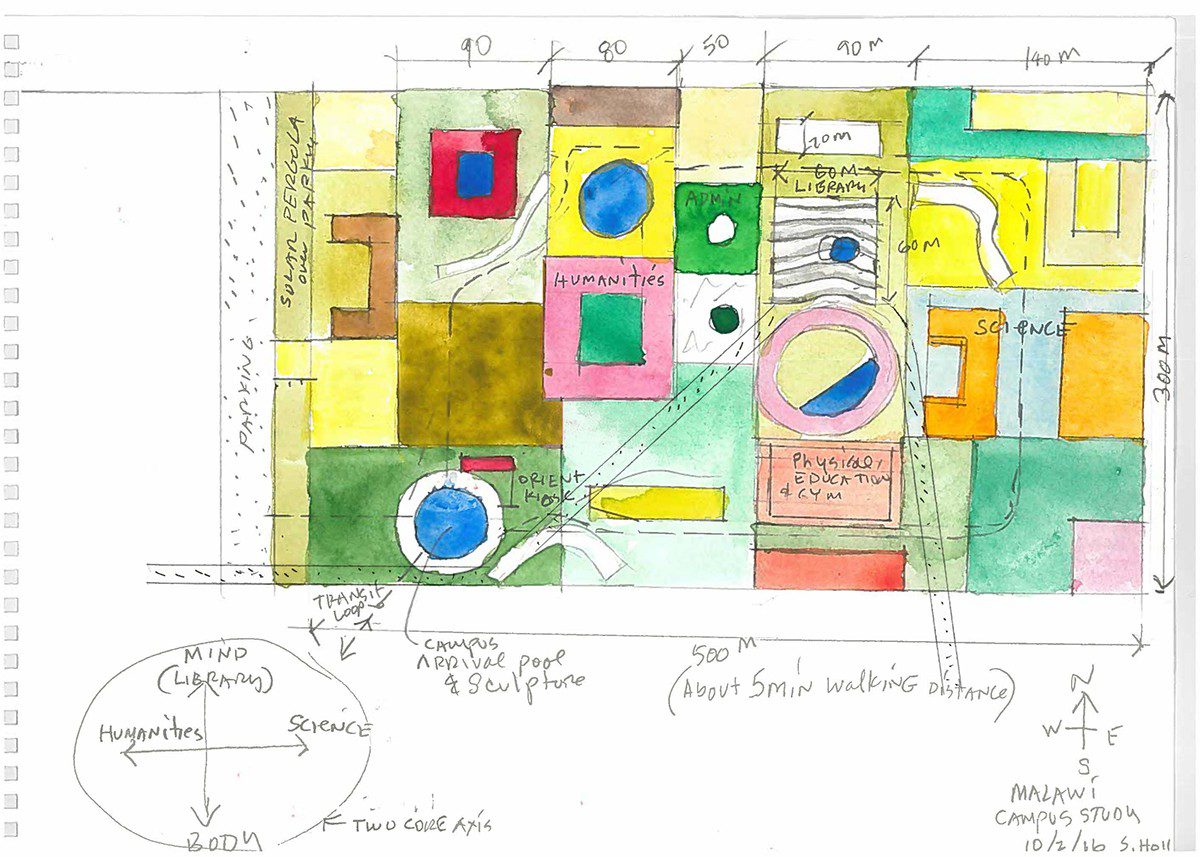 90
80
50
90 M
140 M
SOLAR PERGOLA
over PARKING
PARKING
20M
60M
LIBRARY
60M
ADMIN
HUMANITIES
SCIENCE
300 M
ORIENT
KIOSK
Physical
EDUCATION
& GYM
TRANSIT
LOOP
CAMPUS
ARRIVAL pool
& Sculpture
500 M
(About 5min walking DISTANCE)
MIND
(LIBRARY)
Humanities
Science
BODY
TWO CORE AXIS
N
W E
S
MALAWI
CAMPUS STUDY
10/2/16 S. Holl